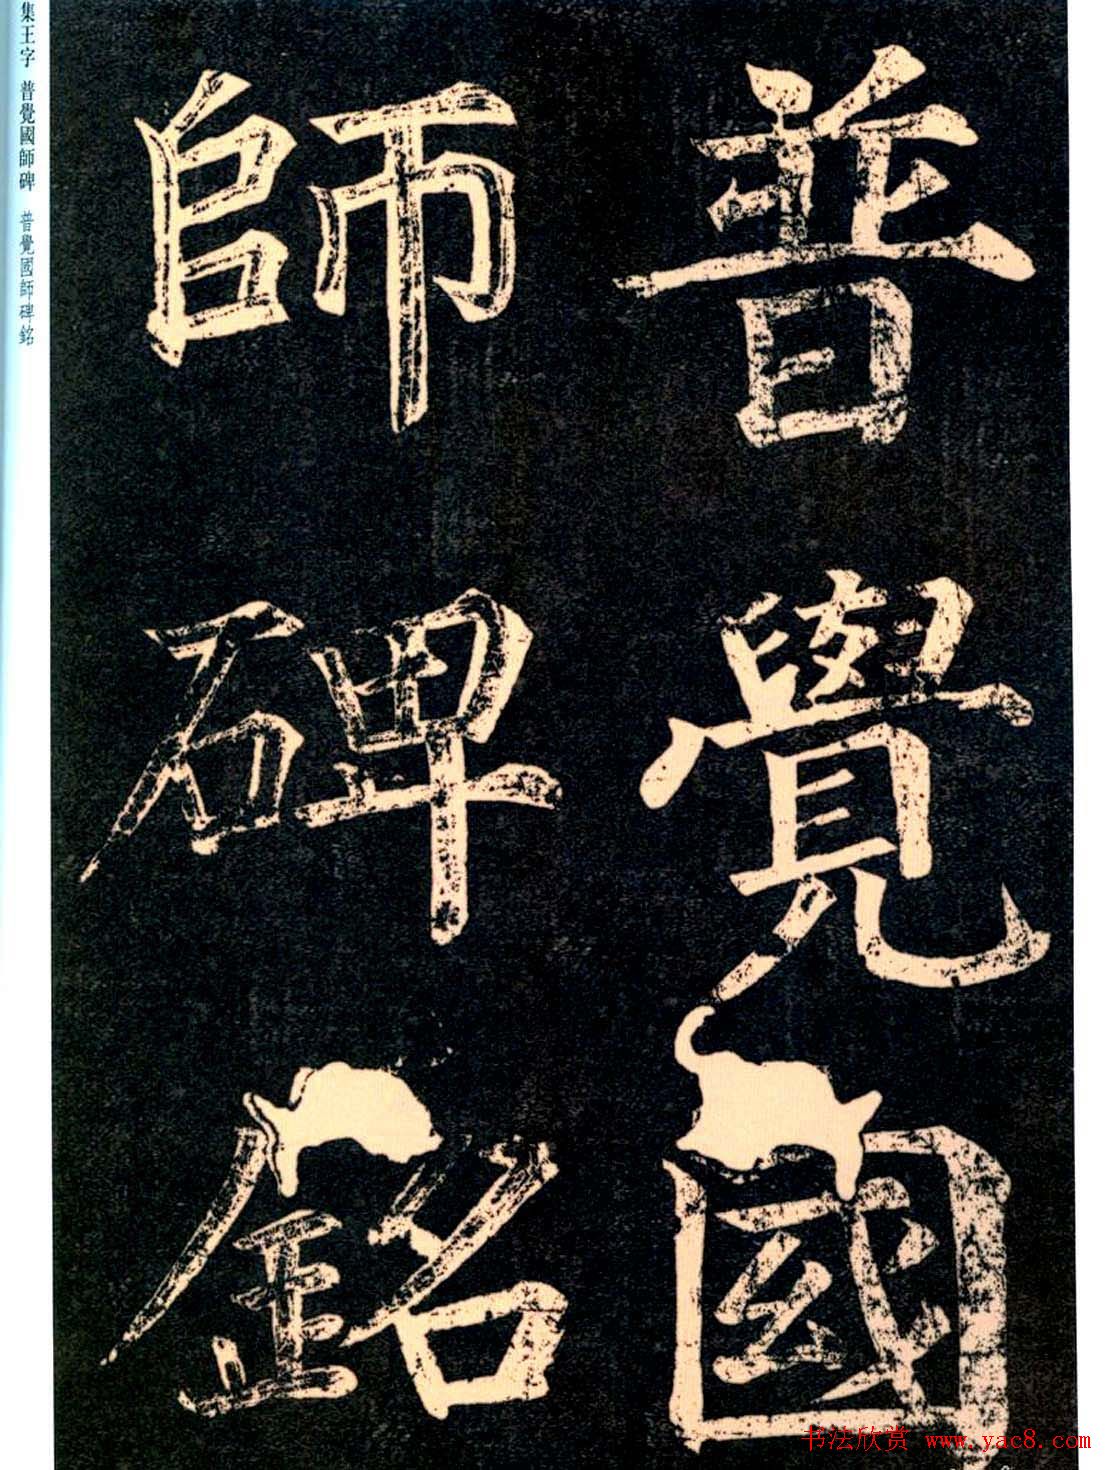 普覺國
師碑銘
集王字 普覺國師碑 普覺國師碑銘
书法欣赏 www.yac8.com